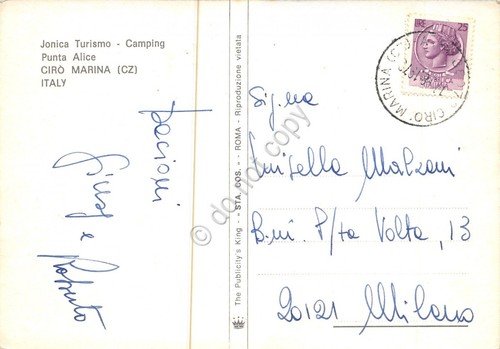 Jonica Turismo - Camping
Punta Alice
CIRÒ MARINA (CZ)
ITALY
bacioni
Giusy e
Roberto
The Publicity's King - "STA. COS." - ROMA - Riproduzione vietata
25
CIRO' MARINA (CZ)
Sig.na
Luisella Malzani
B.ni P/ta Volta, 13
20121 Milano
© do not copy